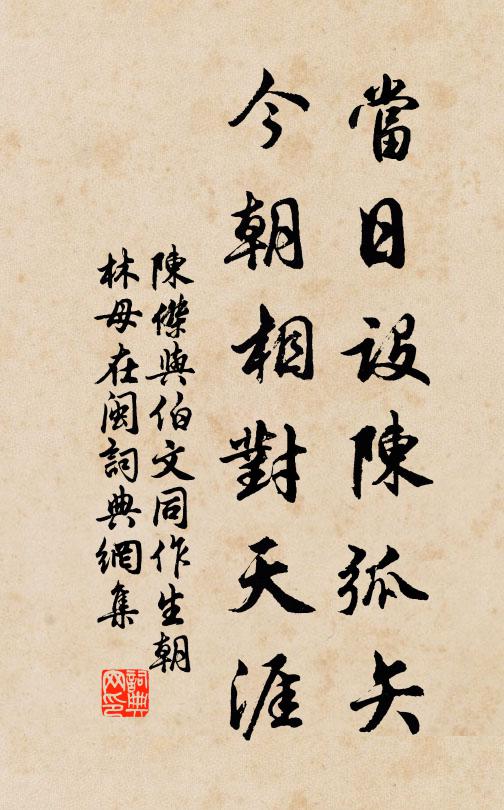 當日設陳弧矢
今朝相對天涯
陳傑與伯文同作生朝
林母在閩詞典網集
詞典网印